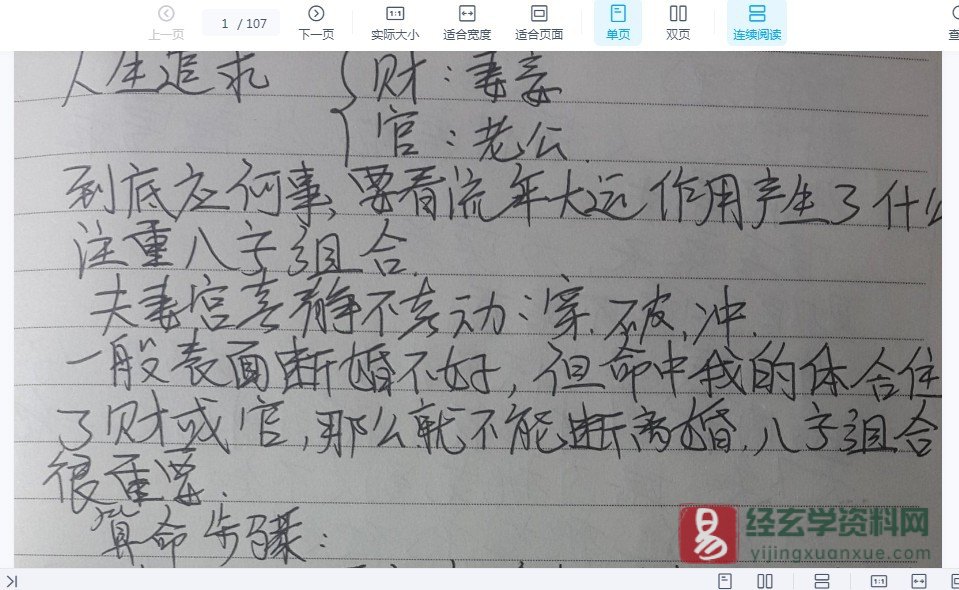 上一页 1 / 107 下一页 实际大小 适合宽度 适合页面 单页 双页 连续阅读 查
人生追求 财：妻妾
官：老公
到底应何事，要看流年大运作用产生了什么
注重八字组合．
夫妻宫喜静不喜动：穿．破．冲．
一般表面断婚不好，但命中我的体合住
了财或官，那么就不能断离婚．八字组合
很重要．
算命步骤：
易 经玄学资料网
yijingxuanxue.com
1:1